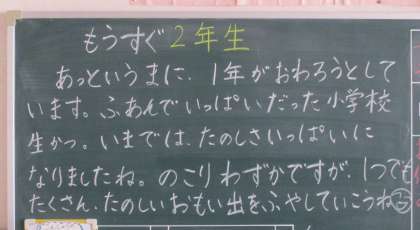 もうすぐ2年生
あっというまに、1年がおわろうとして
います。ふあんでいっぱいだった小学校
生かつ。いまでは、たのしさいっぱいに
なりましたね。のこりわずかですが、1つでも
たくさん、たのしいおもい出をふやしていこうね